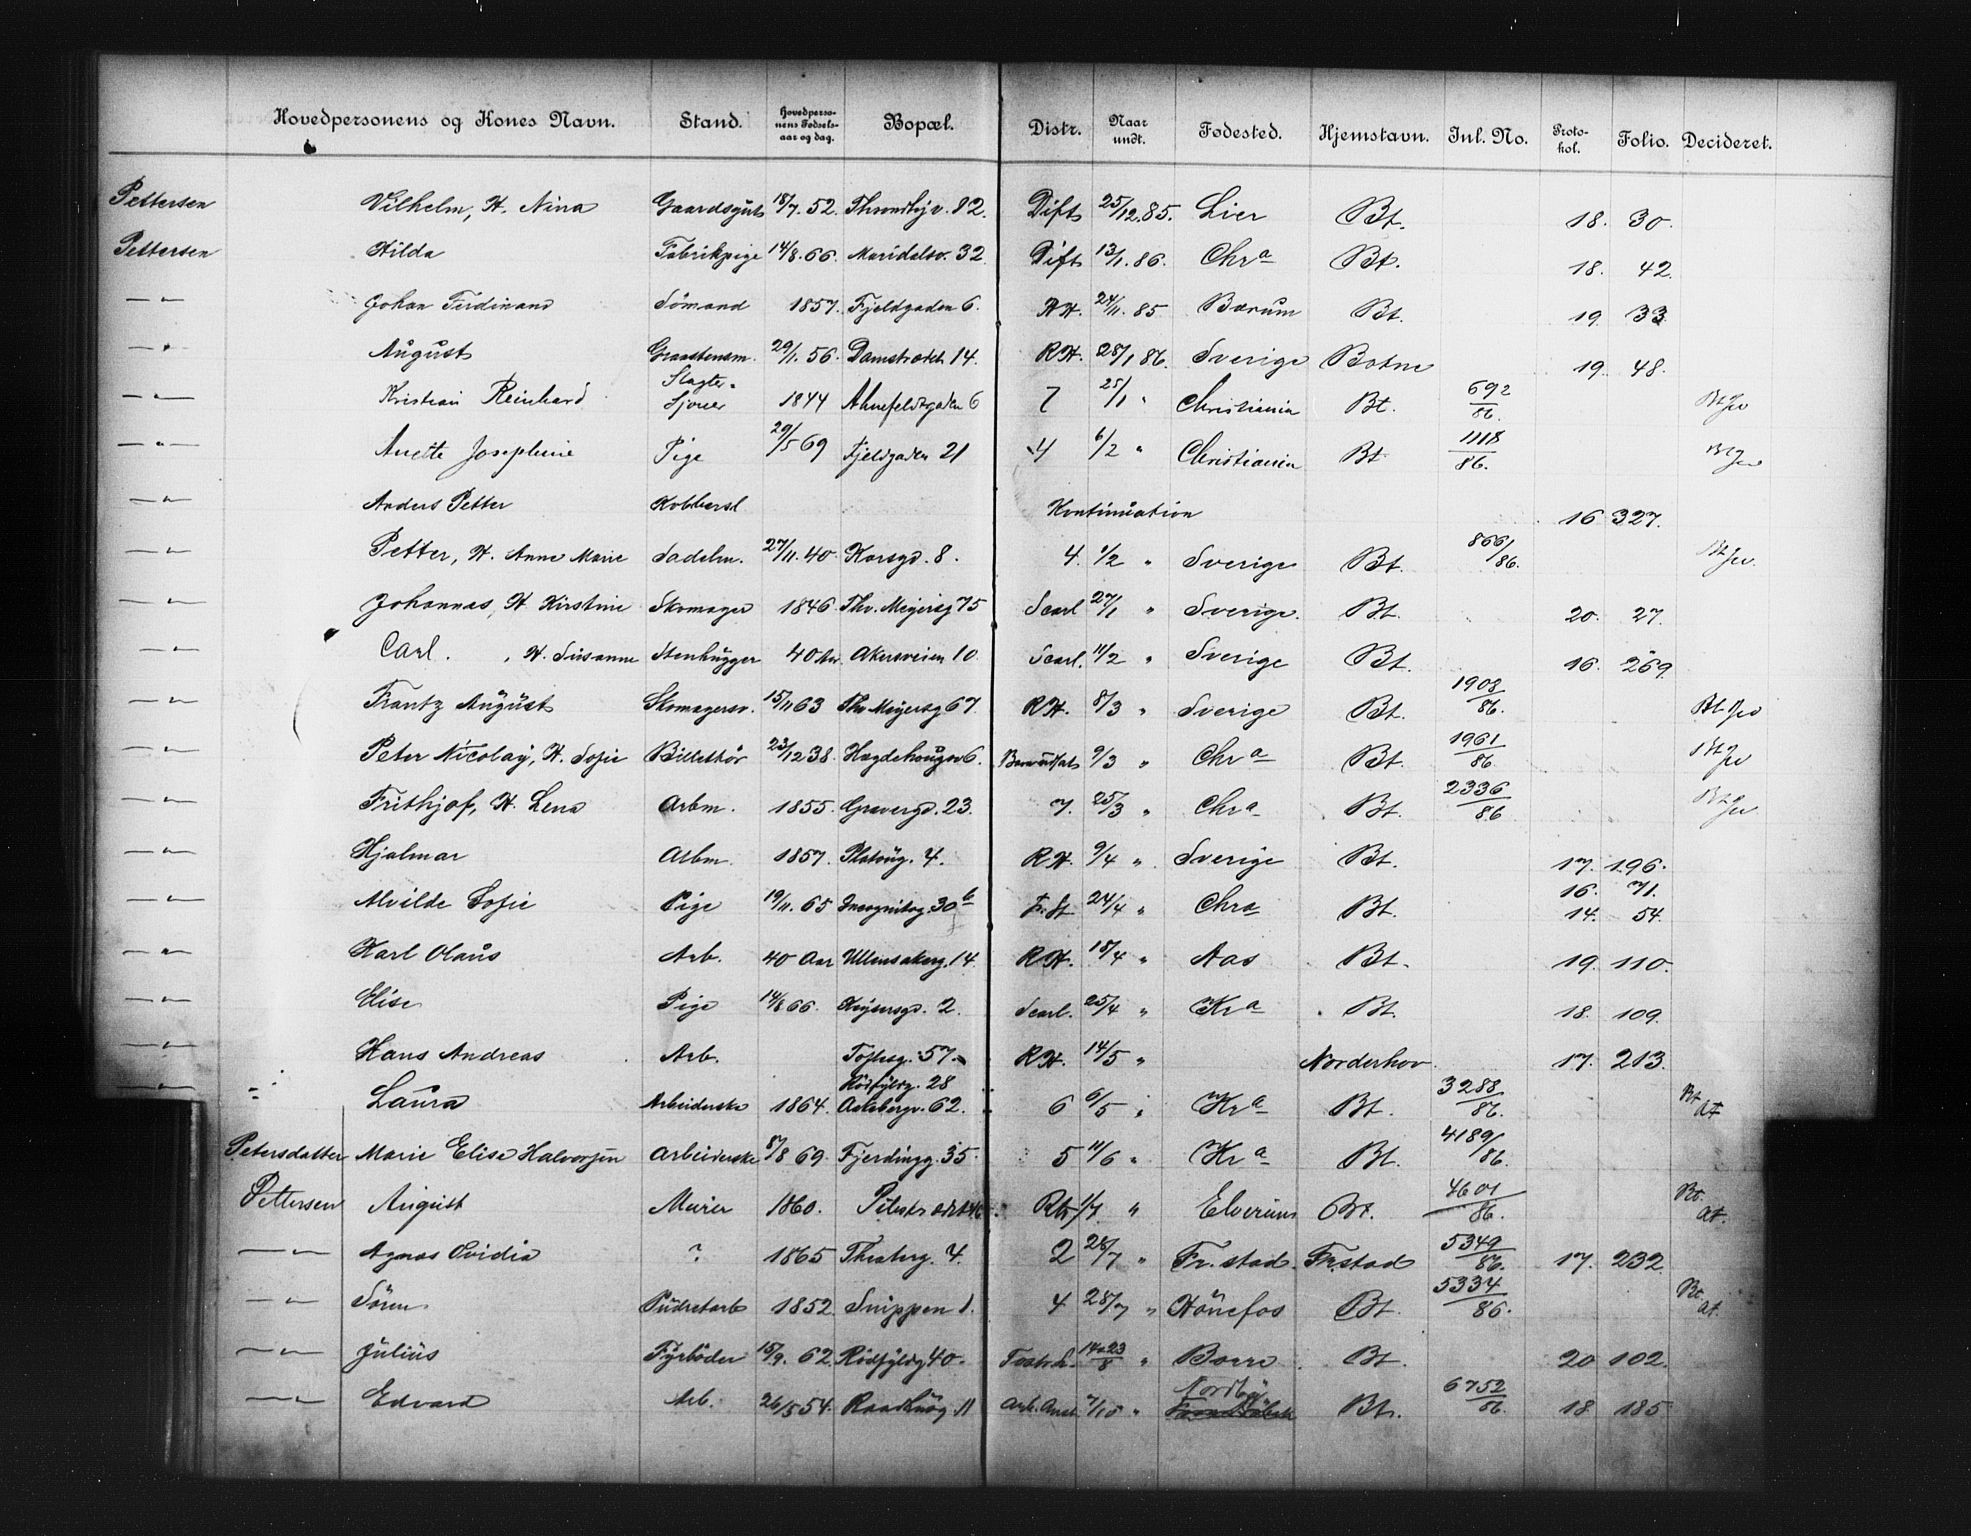 Hovedpersonens og Kones Navn. Stand. Hovedpersonens Fødselsaar og dag. Bopæl. Distr. Naar undt. Fødested. Hjemstavn. Inl. No. Protokol. Folio. Decideret.
Pettersen Vilhelm, H. Nina Gaardsgut 18/7. 52. Throndhjv. 82. Dift 25/12. 85. Lier Bt. 18. 30.
Pettersen Hilda Fabrikpige 14/8. 66. Maridalsv. 32 Dift 13/1. 86. Chra Bt. 18. 42.
— " — Johan Ferdinand Sömand 1857. Fjeldgaden 6. RH. 24/11. 85 Bærum Bt. 19. 33.
— " August Graastensm. 29/1. 56. Damstrædet. 14. RH. 28/1 86. Sverige Botne 19. 48.
— " — Kristian Reinhard Slagter Sjouer 1844 Ahnefeldtgaden 6 7 25/1 " Christiania Bt. 692/86.
— " — Anette Josephine Pige 29/5 69 Fjeldgaden 21 4 6/2 " Christiania Bt. 1118/86.
— " — Anders Petter Kobbersl Kontinuation 16 327.
— " — Petter, H. Anne Marie Sadelm. 27/11. 40. Korsgd. 8. 4. 1/2 " Sverige Bt. 866/86.
— " — Johannes, H. Kirstine Skomager 1846. Thv. Meyersg 75 Scarl 27/1 " Sverige. Bt. 20. 27.
— " — Carl. , H. Susanne Stenhugger 40 Aar Akersveien 10. Scarl. 11/2 " Sverige Bt. 16. 269.
— " — Frantz August Skomagersv. 15/11 63 Thv Meyersg 67. RH. 8/3 " Sverige Bt. 1908/86.
— " — Peter Nicolay, H. Sofie Billettör 23/12 38. Hægdehaugsv 6. 9/3 " Chra Bt. 1961/86.
— " — Frithjof, H. Lena Arbm. 1855. Gravergd. 23. 7. 25/3 " Chra Bt. 2336/86
— " — Hjalmar Arbm. 1857. Platoug. 4. RH. 9/4 " Sverige Bt. 17. 196.
— " — Alvilde Sofie Pige 19/11. 65 Incognitog. 30 b Fr. St 24/4 " Chra Bt. 16. 71.
14. 54.
— " — Karl Olaus Arb. 40 Aar Ullensakerg. 14. RH. 18/4 " Aas Bt. 19. 110.
— " — Elise Pige 14/8 66. Keysersgd. 2. Scarl. 25/4 " Kra Bt. 18. 109.
— " — Hans Andreas Arb. Toftesg. 57. RH. 14/5 " Norderhov 17. 213.
— " — Laura Arbeiderske 1864. Rödfyldg. 28 Aakebergv. 62. 6 6/5 " Kra Bt. 3288/86. Bt At
Petersdatter Marie Elise Halvorsen Arbeiderske 8/8 69. Fjerdingg. 35. 5 11/6 " Kra Bt. 4189/86.
Pettersen August Murer 1860. Pilestrædet 46. 1/7. " Elverum Bt. 4601/86. Bt. At.
— " — Agnes Ovidia ? 1865 Theaterg. 4. 2 28/7 " Fr.stad. Fr.stad 5349/86. 17. 232.
— " — Sören Pudretarb 1852. Snippen 1. 4 28/7 " Hönefos Bt. 5334/86. Bt. At.
— " — Julius Fyrböder 15/9. 62. Rödfyldg 40. 14 o 23/8 " Borre Bt. 20 102.
— " — Edvard Arb. 26/5 54. Raadhusg. 11 Arb. Anst 7/10 " Nordby Bt. 6752/86. 18. 185